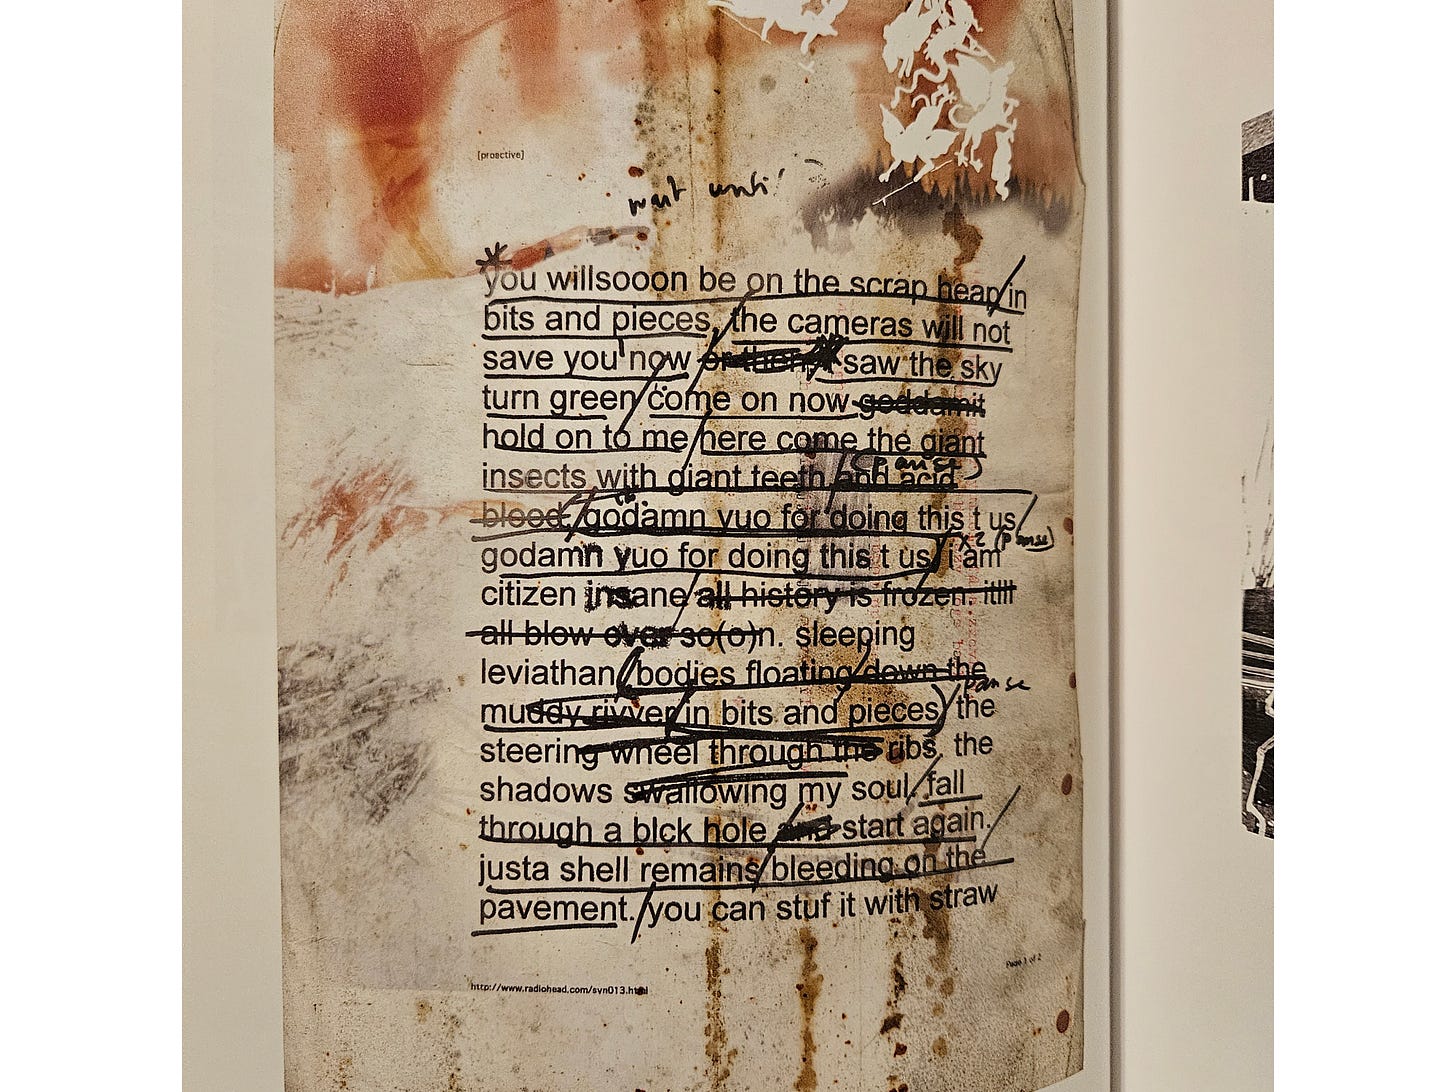 [proactive]
wait until
*
you willsooon be on the scrap heap/in
bits and pieces, the cameras will not
save you now or then. I saw the sky
turn green/come on now goddamit
hold on to me/here come the giant
(pause)
insects with giant teeth/and acid
blood. godamn yuo for doing this t us/
x2 (pause)
godamn yuo for doing this t us/ i am
citizen insane all history is frozen. itlll
all blow over so(o)n. sleeping
leviathan(bodies floating/down the
pause
muddy rivver/in bits and pieces)/the
steering wheel through the ribs. the
shadows swallowing my soul/fall
through a blck hole/and start again.
justa shell remains/bleeding on the
pavement./you can stuf it with straw
Page 1 of 2
http://www.radiohead.com/syn013.html